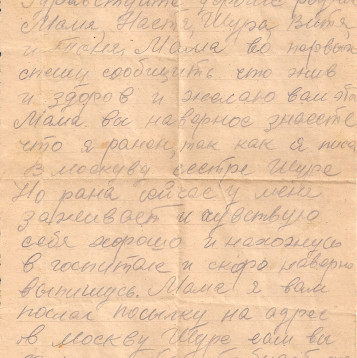 Здравствуйте дорогие
Мама Настя, Шура Витя
и Мама во первых
спешу сообщить что жив
и здоров и желаю вам
Мама вы наверное знаете
что я ранен так как я
в москву сестре Шуре
Но рана сейчас у меня
заживает и чувствую
себя хорошо и нахожусь
в госпитале и скоро наверно
выпишусь. Мама я вам
послал посылку на адрес
в москву Шуре если вы